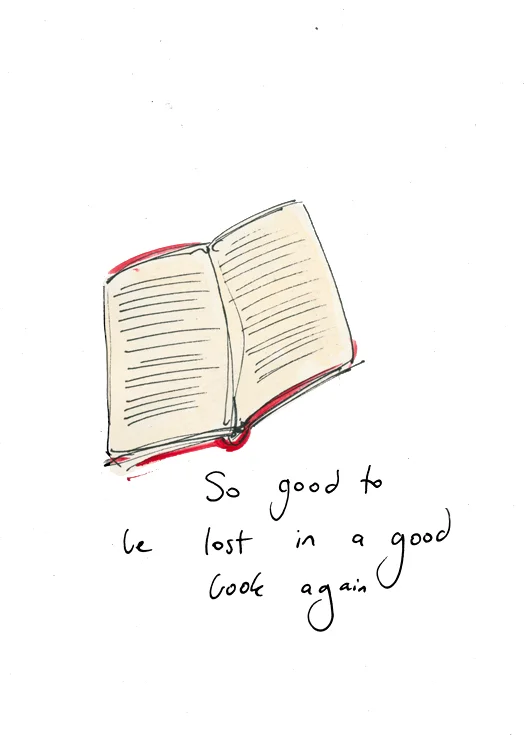 So good to
be lost in a good
book again